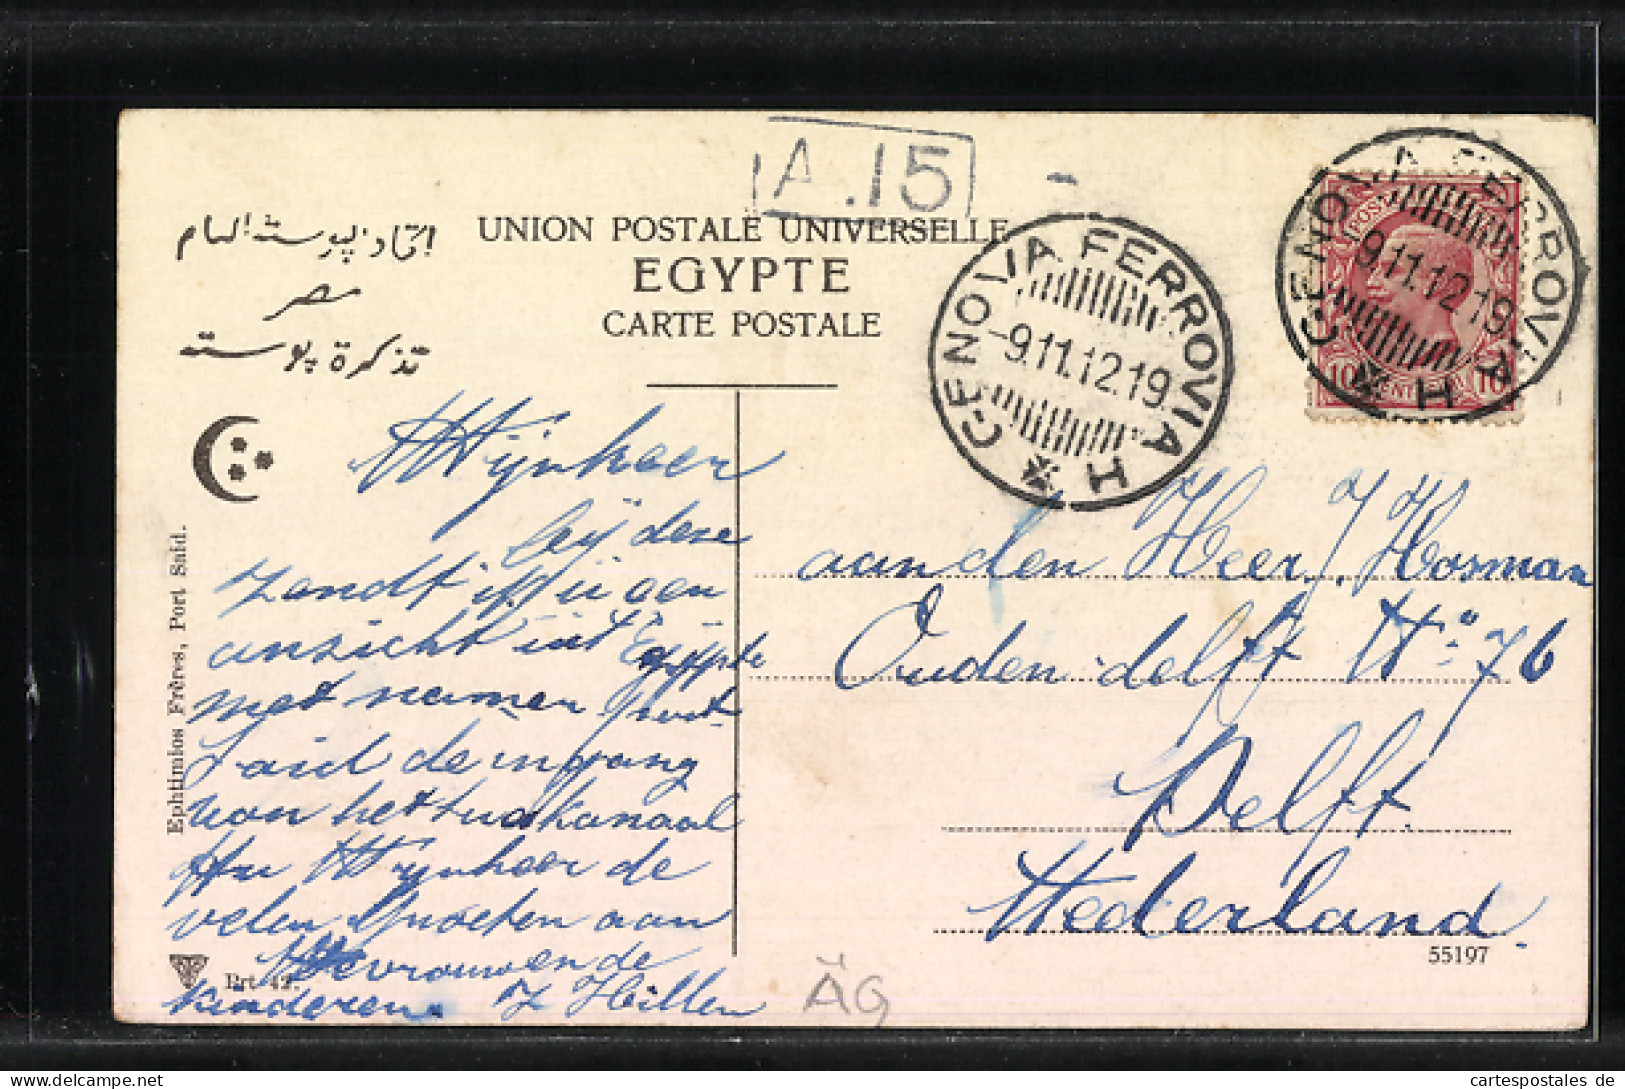 A.15
اتحاد بوستة العام
مصر
تذكرة بوستة
UNION POSTALE UNIVERSELLE
EGYPTE
CARTE POSTALE
GENOVA FERROVIA H
-9.11.12.19
GENOVA FERROVIA H
9.11.12.19
POSTE
10 CENTESIMI 10
Mijnheer
bij deze
zendt ik u een
ansicht uit Egypte
met namen Port
Said de ingang
van het suezkanaal
Mijnheer de
velen Groeten aan
Mevrouw en de
kinderen. J Hillen
aan den Heer J. Hosman
Ouden delft No: 76
Delft
Nederland.
55197
Ephtimios Frères, Port Said.
Prt. 42.
ÄG
cartespostales.de